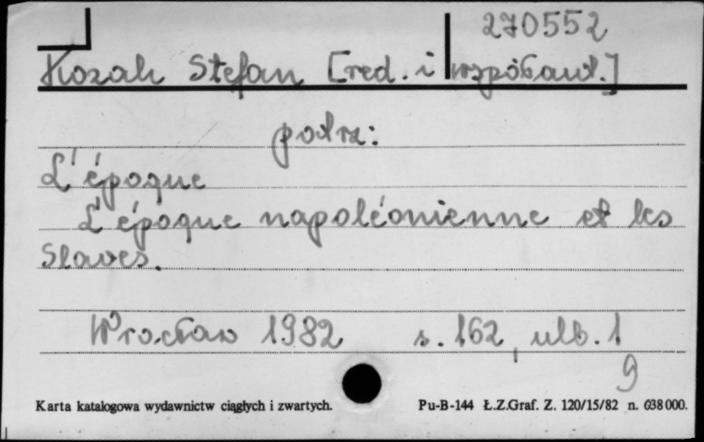 270552
Kozak Stefan [red. i współaut.]
podrz:
L'époque
L'époque napoléonienne et les
Slaves.
Wrocław 1982 s. 162, ulb. 1
9
Karta katalogowa wydawnictw ciągłych i zwartych. Pu-B-144 Ł.Z.Graf. Z. 120/15/82 n. 638000.